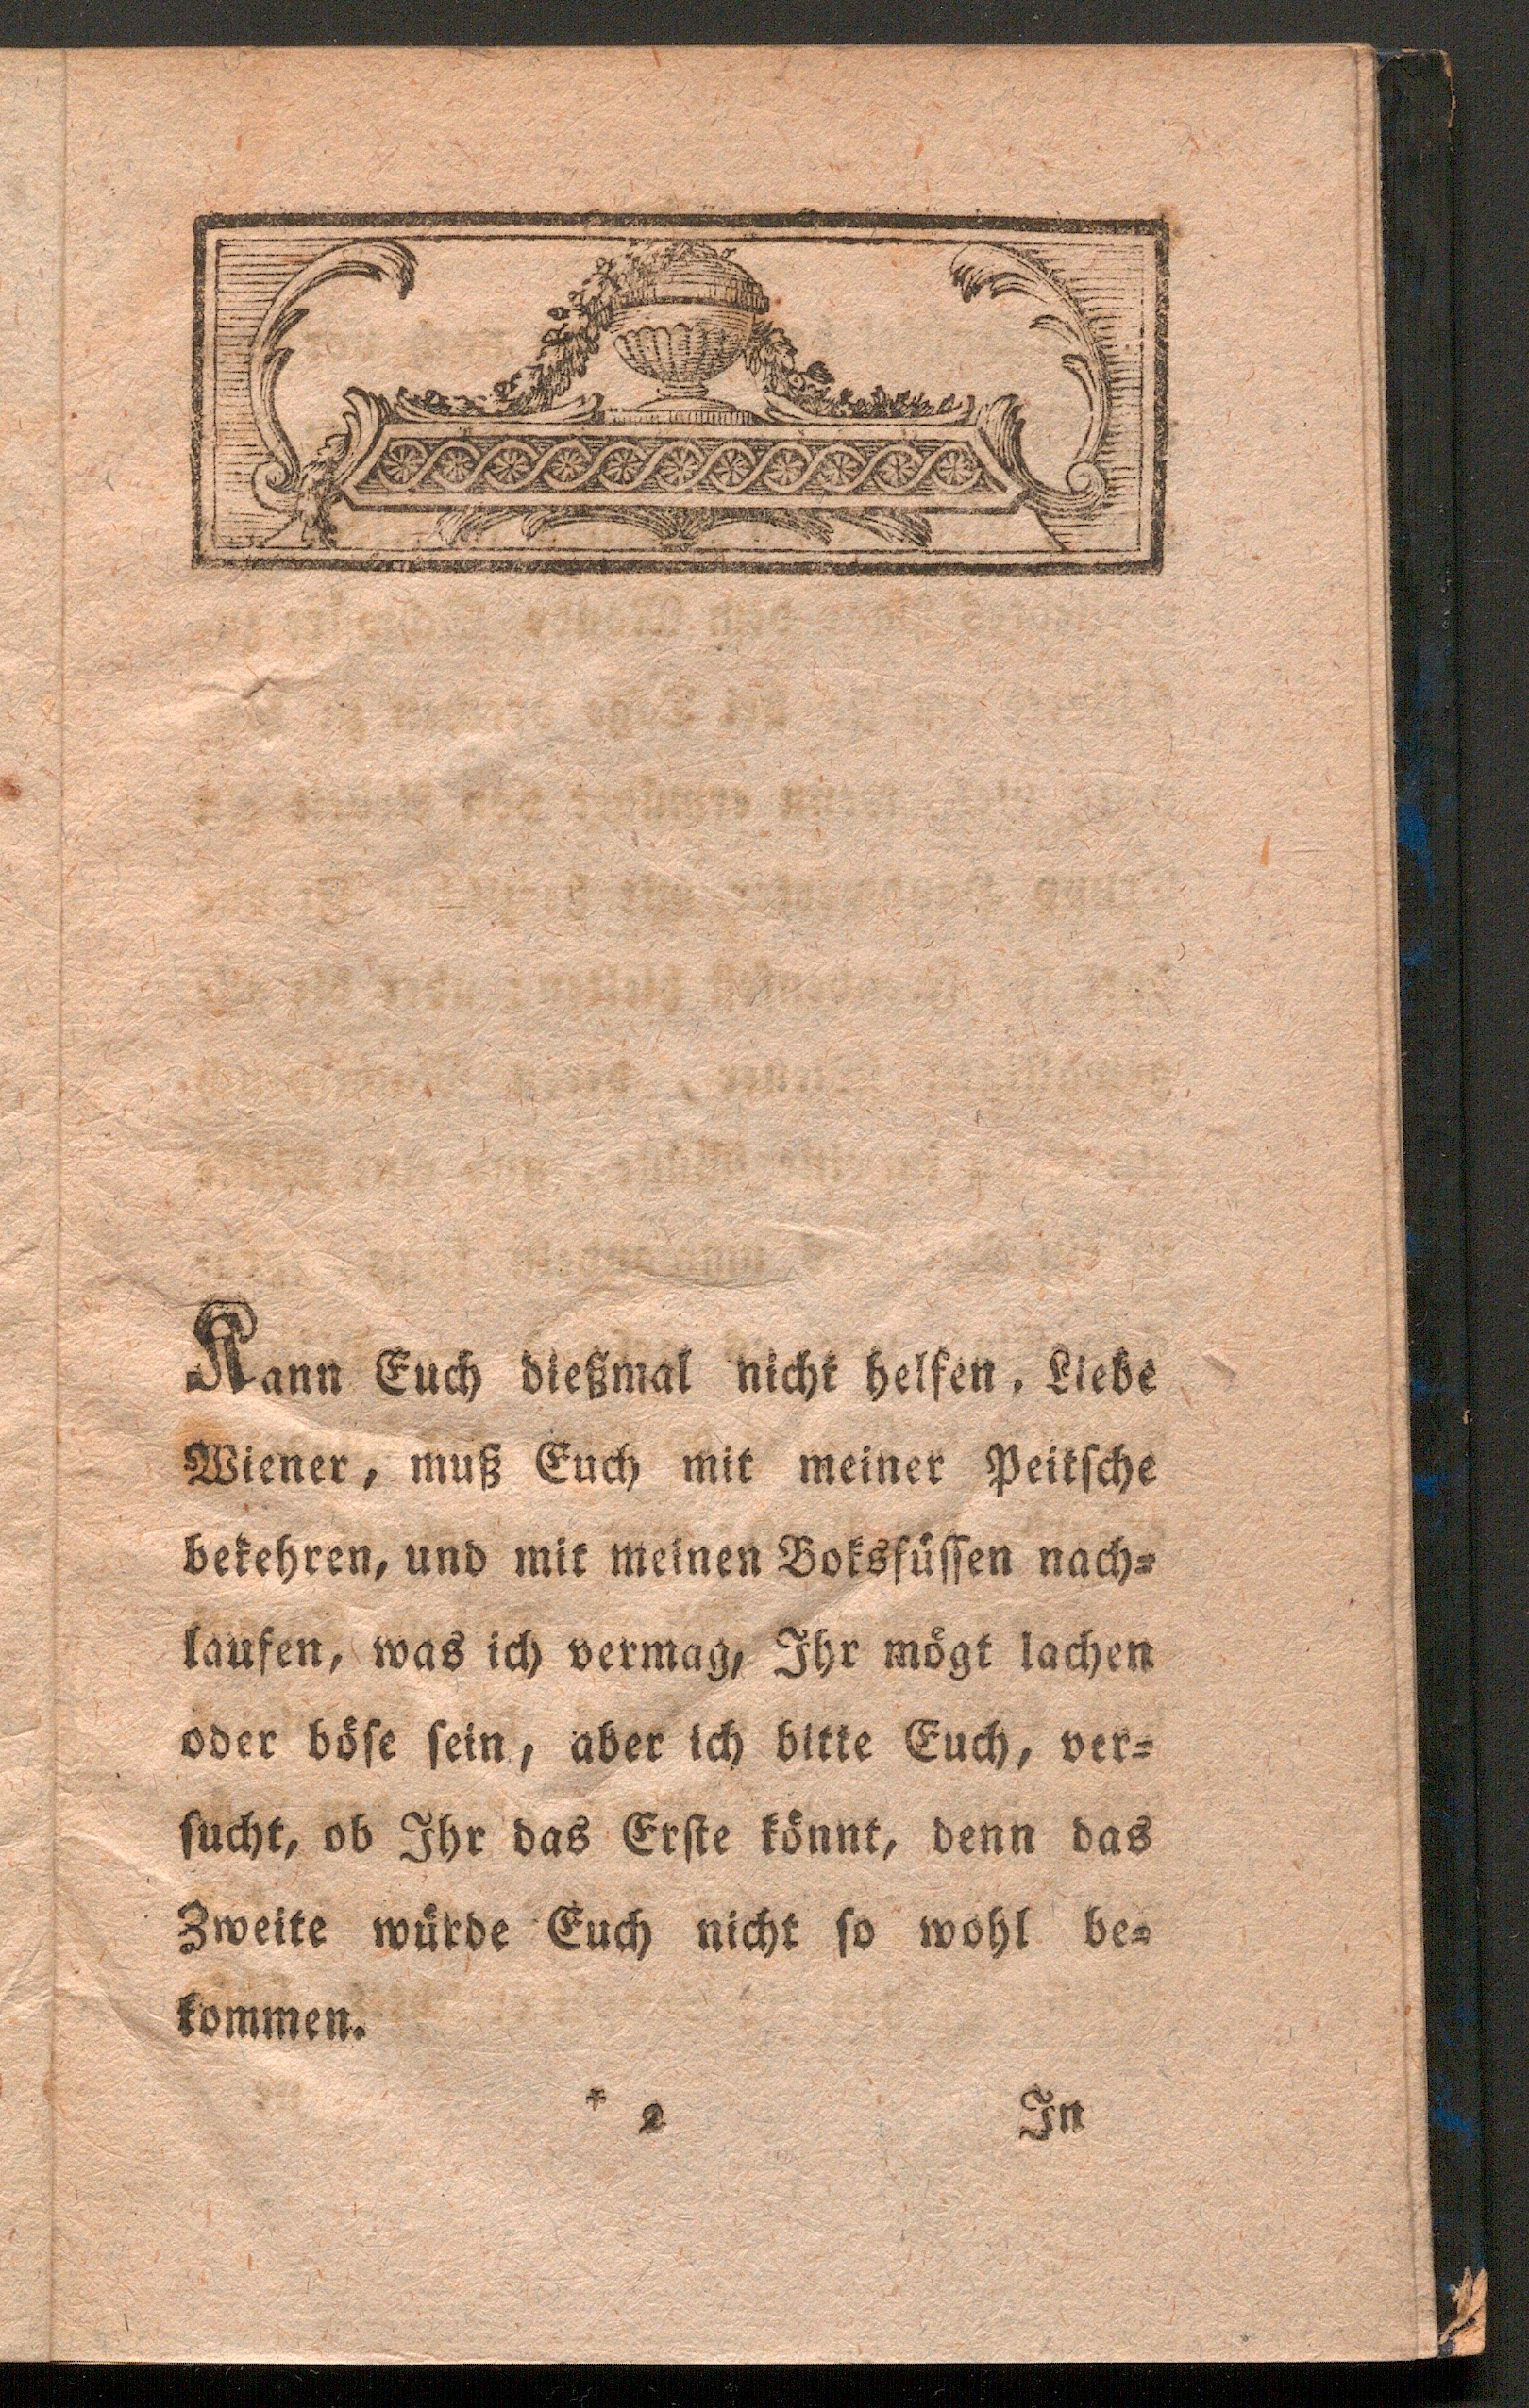 Kann Euch dießmal nicht helfen, Liebe
Wiener, muß Euch mit meiner Peitsche
bekehren, und mit meinen Boksfüssen nach=
laufen, was ich vermag, Ihr mögt lachen
oder böse sein, aber ich bitte Euch, ver=
sucht, ob Ihr das Erste könnt, denn das
Zweite würde Euch nicht so wohl be=
kommen.
* 2 In